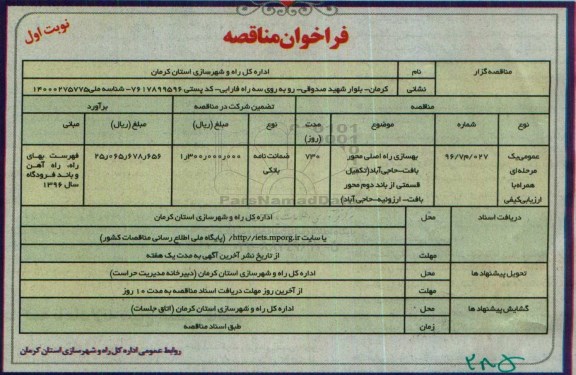 فراخوان مناقصه
نوبت اول
مناقصه گزار
نام
اداره کل راه و شهرسازی استان کرمان
نشانی
کرمان- بلوار شهید صدوقی- رو به روی سه راه فارابی- کد پستی ۷۶۱۷۸۹۹۵۹۶- شناسه ملی ۱۴۰۰۰۲۷۵۷۷۵
مناقصه
تضمین شرکت در مناقصه
برآورد
نوع
شماره
موضوع
مدت (روز)
نوع
مبلغ (ریال)
مبلغ (ریال)
مبانی
عمومی یک مرحله ای همراه با ارزیابی کیفی
۹۶/۷م/۰۲۷
بهسازی راه اصلی محور بافت-حاجی آباد(تکمیل قسمتی از باند دوم محور بافت- ارزوئیه-حاجی آباد)
۷۳۰
ضمانت نامه بانکی
۱٫۳۰۰٫۰۰۰٫۰۰۰
۲۵٫۰۶۵٫۶۷۸٫۶۵۶
فهرست بهای راه، راه آهن و باند فرودگاه سال ۱۳۹۶
دریافت اسناد
محل
اداره کل راه و شهرسازی استان کرمان
یا سایت http//iets.mporg.ir/ (پایگاه ملی اطلاع رسانی مناقصات کشور)
مهلت
از تاریخ نشر آخرین آگهی به مدت یک هفته
تحویل پیشنهاد ها
محل
اداره کل راه و شهرسازی استان کرمان (دبیرخانه مدیریت حراست)
مهلت
از آخرین روز مهلت دریافت اسناد مناقصه به مدت ۱۰ روز
گشایش پیشنهاد ها
محل
اداره کل راه و شهرسازی استان کرمان (اتاق جلسات)
زمان
طبق اسناد مناقصه
روابط عمومی اداره کل راه و شهرسازی استان کرمان